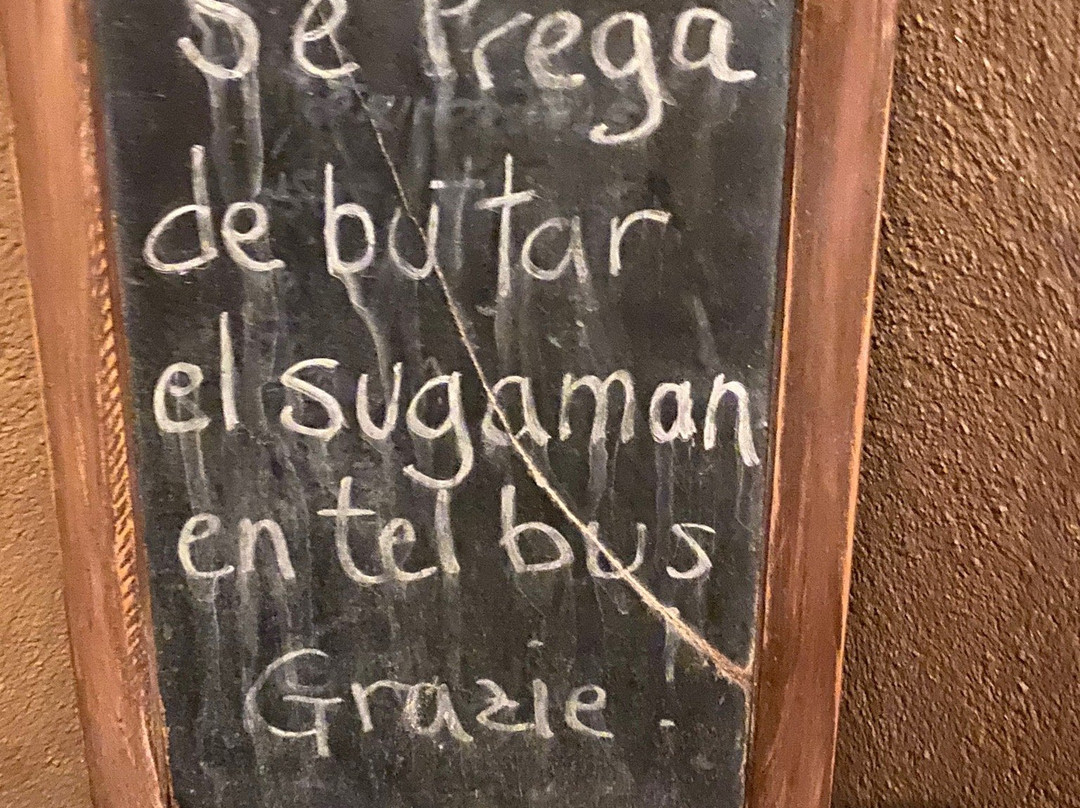 Se Prega
de butar
el sugaman
en tel bus
Grazie.